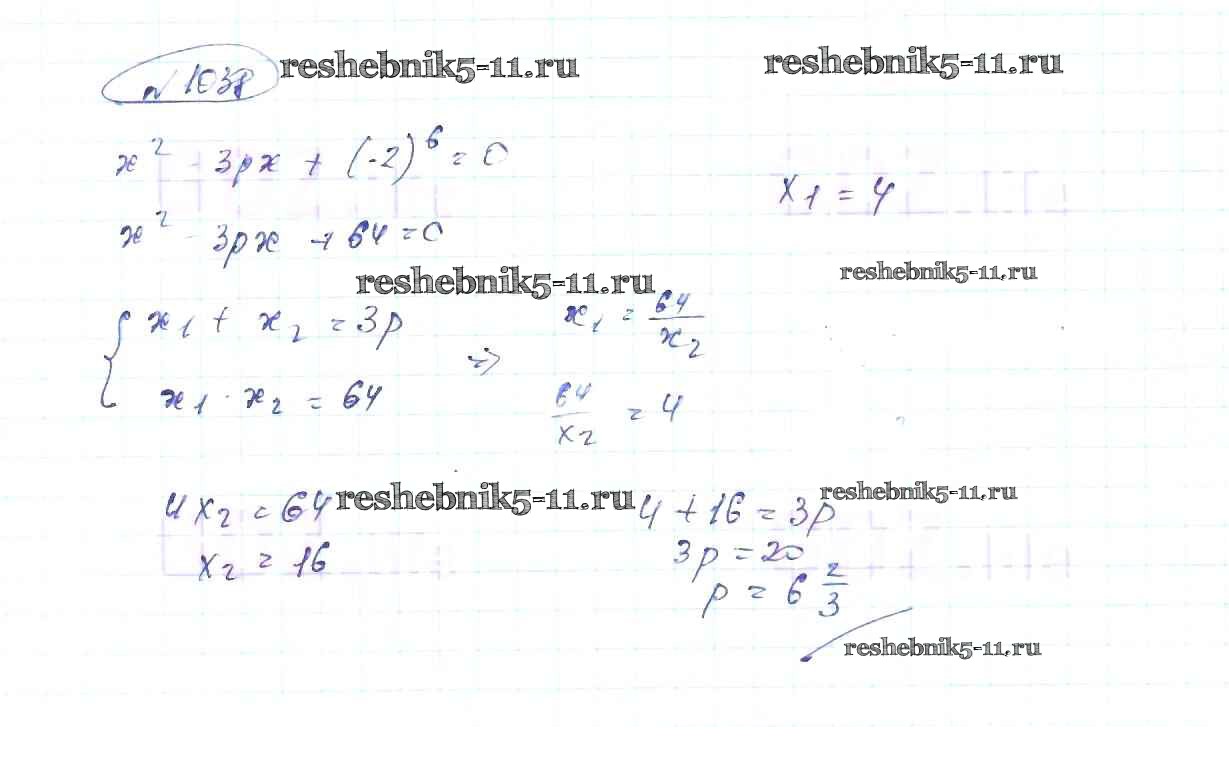 reshebnik5-11.ru reshebnik5-11.ru
x² - 3px + (-2)⁶ = 0
x₁ = 4
x² - 3px + 64 = 0
reshebnik5-11.ru
reshebnik5-11.ru
{ x₁ + x₂ = 3p
x₁ · x₂ = 64
⇒
x₁ = 64/x₂
64/x₂ = 4
reshebnik5-11.ru
reshebnik5-11.ru
4x₂ = 64
x₂ = 16
4 + 16 = 3p
3p = 20
p = 6 2/3
reshebnik5-11.ru